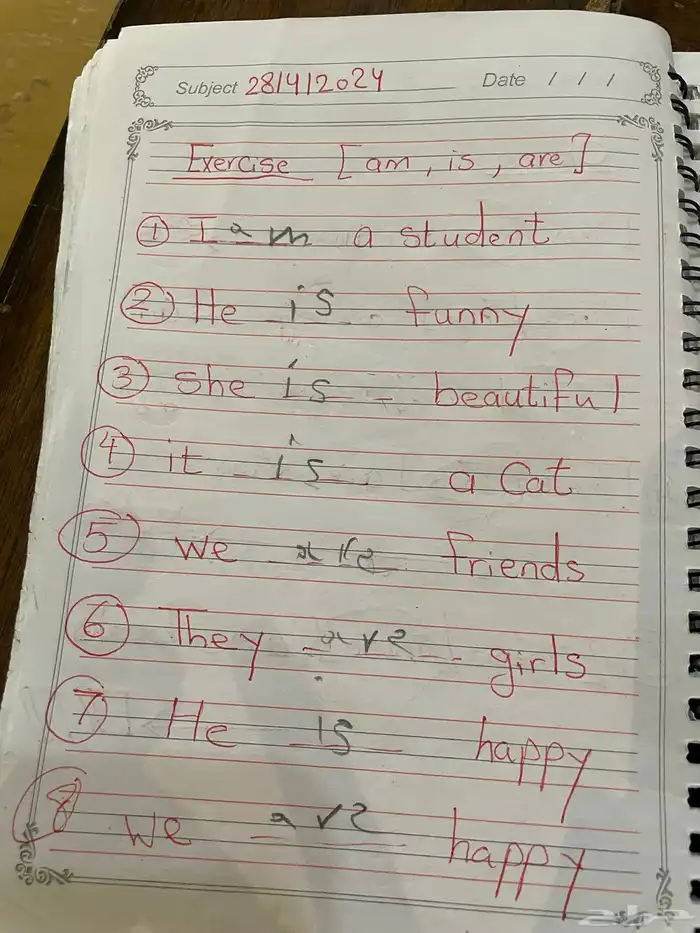 Subject 28/4/2024 Date / / /
Exercise [am, is, are]
① I am a student
② He is funny
③ she is beautiful
④ it is a Cat
⑤ we are friends
⑥ They are girls
⑦ He is happy
⑧ we are happy